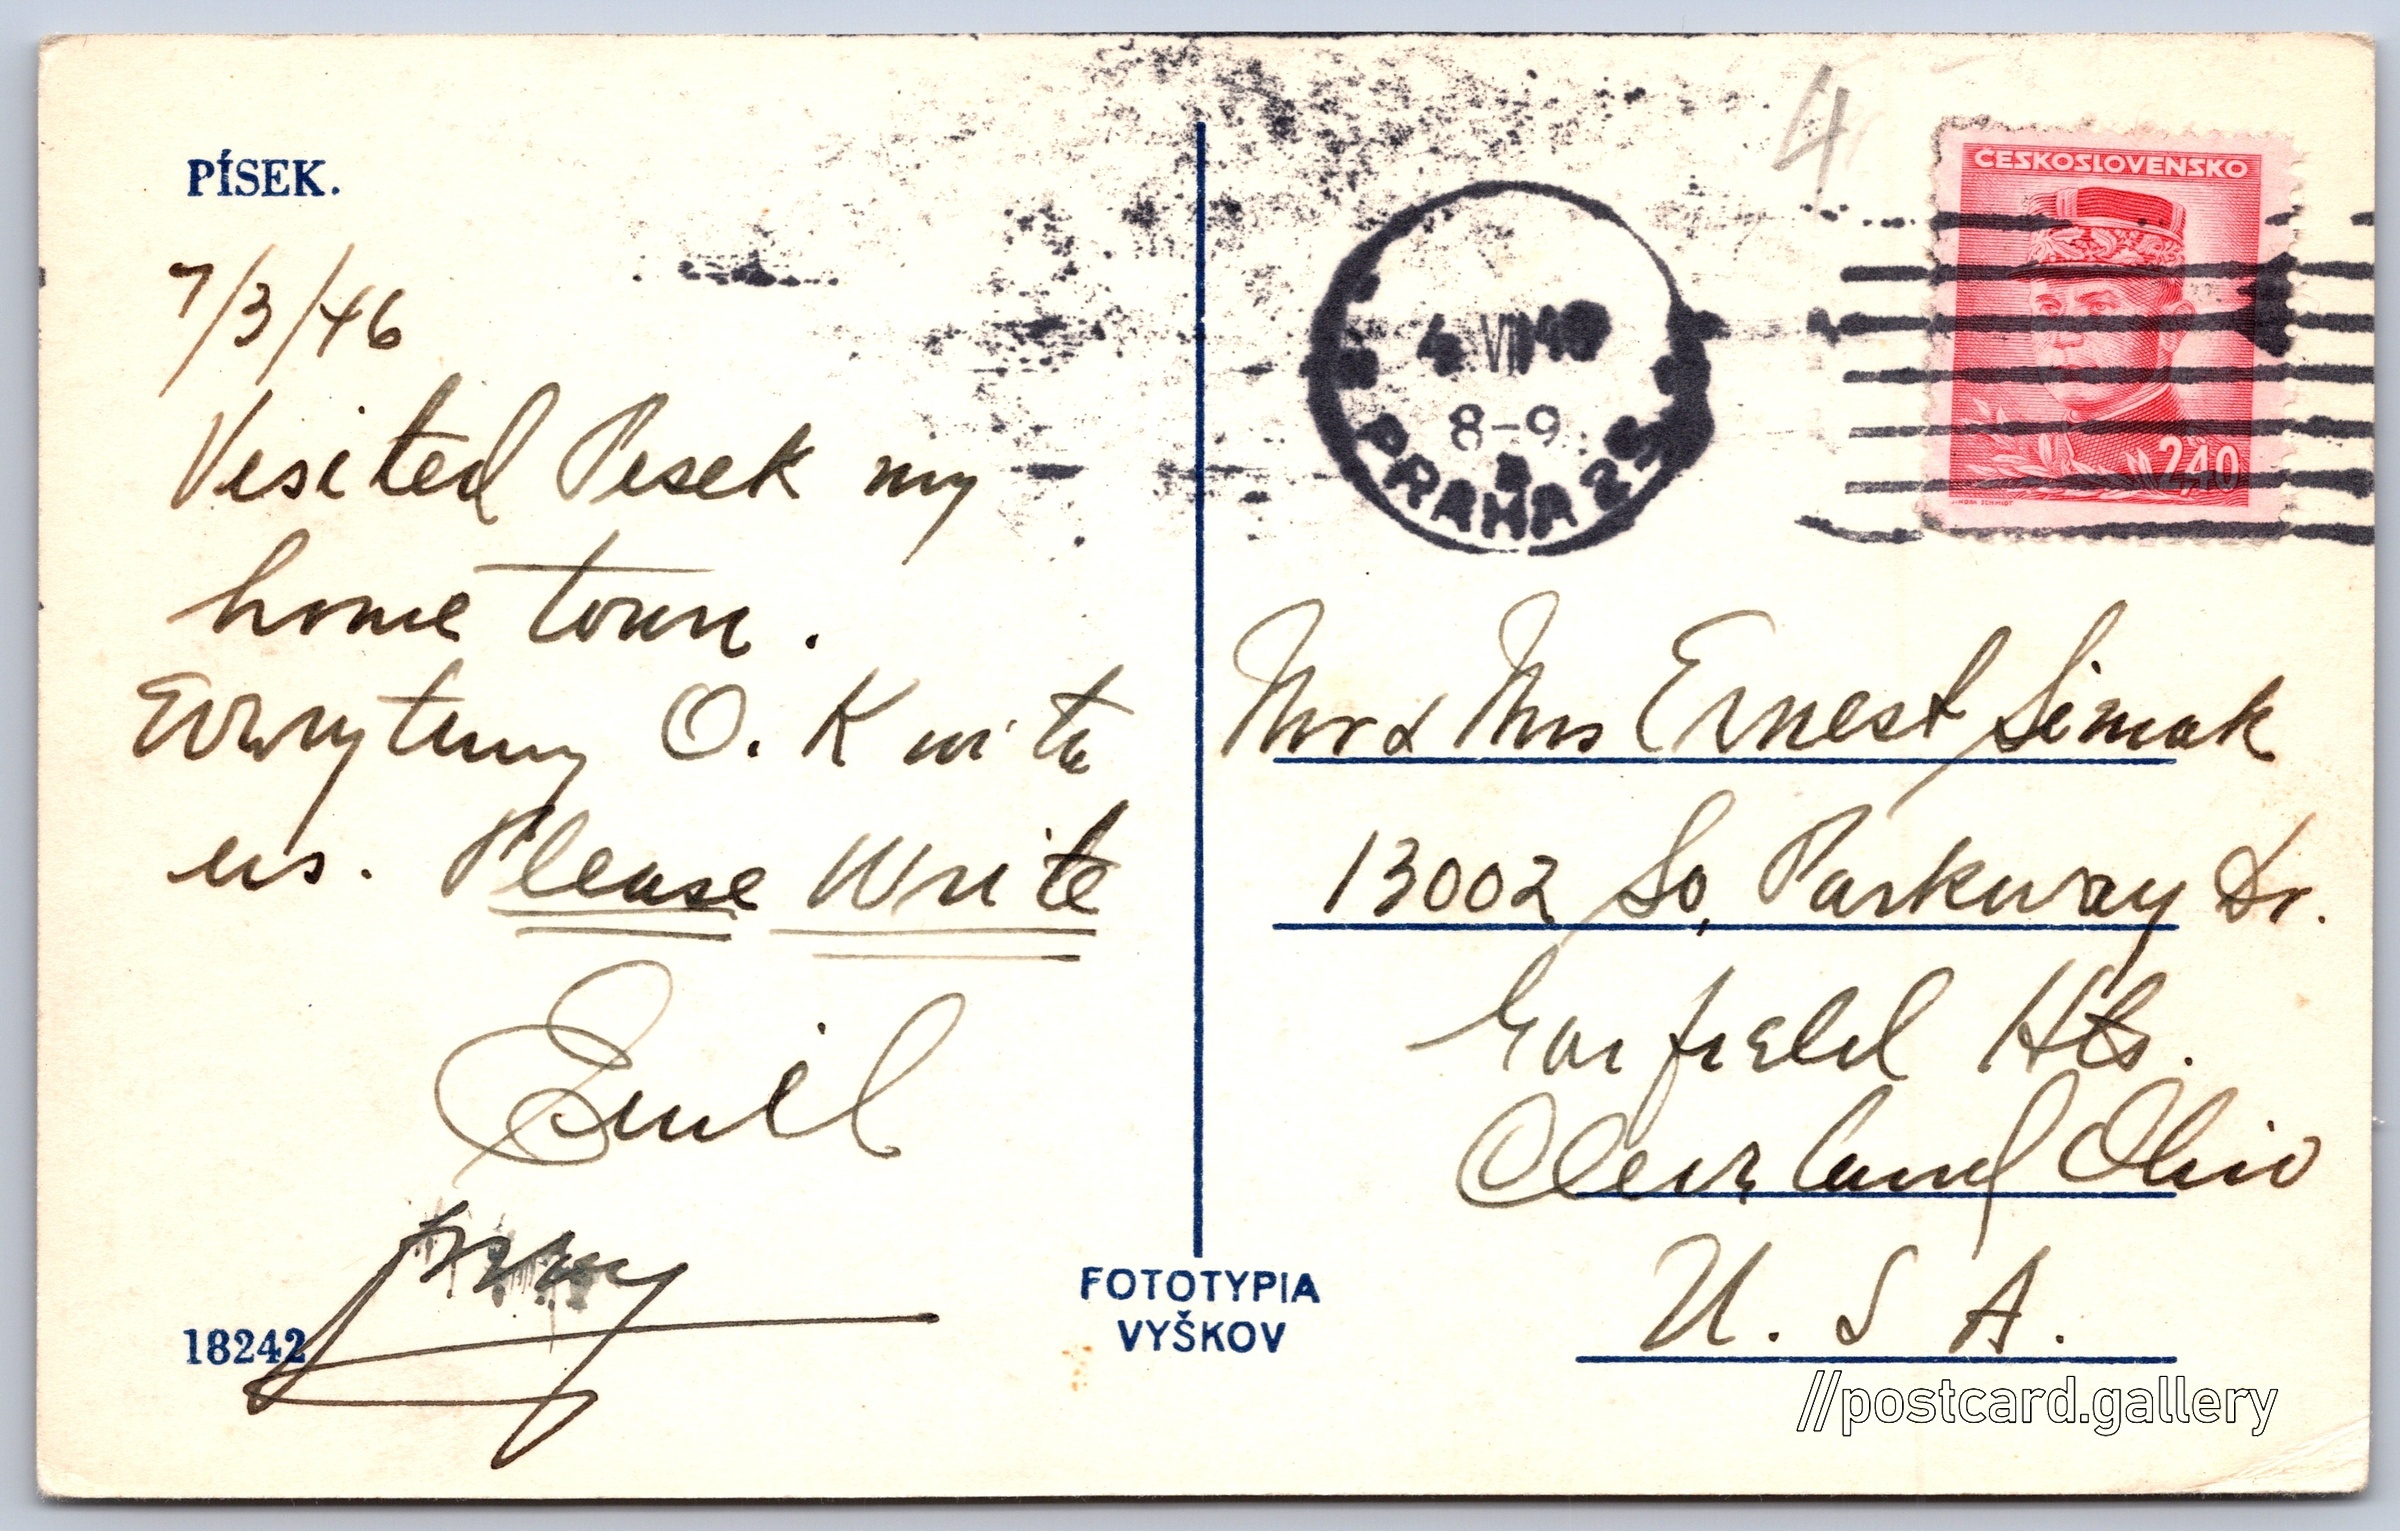 PÍSEK.
7/3/46
Visited Pisek my
home town.
Evrrytmy O. K with
us. Please Write
Emil
18242
FOTOTYPIA
VYŠKOV
4
ČESKOSLOVENSKO
2,40
4 VII 46
8-9
PRAHA 25
Mr & Mrs Ernest Simak
13002 So, Parkway Dr.
Garfield Hts.
Cleveland Ohio
U. S A.
//postcard.gallery